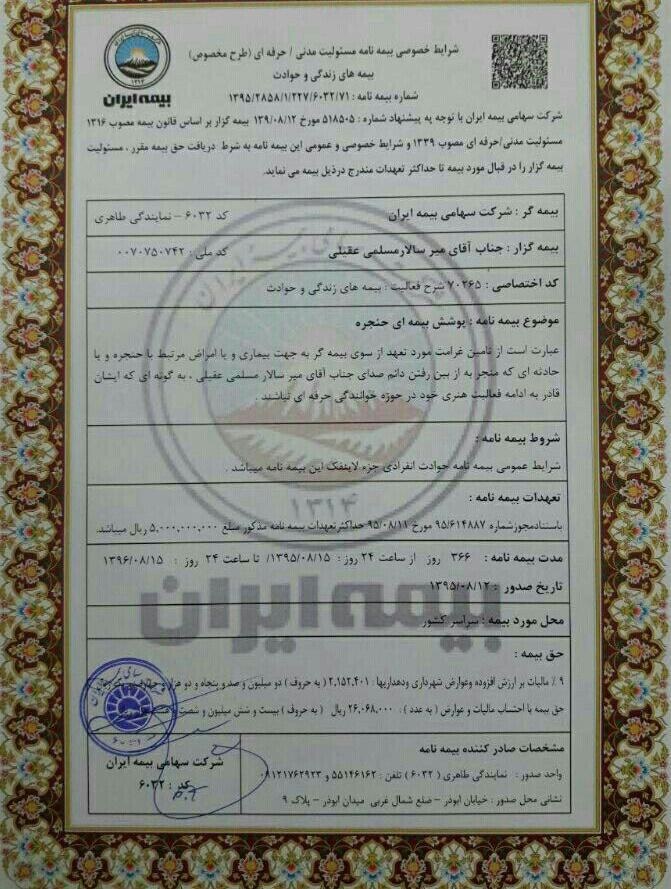 شرایط خصوصی بیمه نامه مسئولیت مدنی / حرفه ای (طرح مخصوص)
بیمه های زندگی و حوادث
شماره بیمه نامه : ۱۳۹۵/۲۸۵۸/۱/۲۲۷/۶۰۳۲/۷۱
بیمه ایران
شرکت سهامی بیمه ایران با توجه به پیشنهاد شماره : ۵۱۸۵۰۵ مورخ ۱۳۹/۰۸/۱۲ بیمه گزار بر اساس قانون بیمه مصوب ۱۳۱۶
مسئولیت مدنی/حرفه ای مصوب ۱۳۳۹ و شرایط خصوصی و عمومی این بیمه نامه به شرط دریافت حق بیمه مقرر ، مسئولیت
بیمه گزار را در قبال مورد بیمه تا حداکثر تعهدات مندرج درذیل بیمه می نماید.
بیمه گر : شرکت سهامی بیمه ایران کد ۶۰۳۲ – نمایندگی طاهری
بیمه گزار : جناب آقای میر سالارمسلمی عقیلی کد ملی : ۰۰۷۰۷۵۰۷۴۲
کد اختصاصی : ۷۰۲۶۵ شرح فعالیت : بیمه های زندگی و حوادث
موضوع بیمه نامه : پوشش بیمه ای حنجره
عبارت است از تامین غرامت مورد تعهد از سوی بیمه گر به جهت بیماری و یا امراض مرتبط با حنجره و یا
حادثه ای که منجر به از بین رفتن دائم صدای جناب آقای میر سالار مسلمی عقیلی ، به گونه ای که ایشان
قادر به ادامه فعالیت هنری خود در حوزه خوانندگی حرفه ای نباشند .
شروط بیمه نامه :
شرایط عمومی بیمه نامه حوادث انفرادی جزء لاینفک این بیمه نامه میباشد .
تعهدات بیمه نامه :
باستنادمجوزشماره ۹۵/۶۱۴۸۸۷ مورخ ۹۵/۰۸/۱۱ حداکثرتعهدات بیمه نامه مذکور مبلغ ۵,۰۰۰,۰۰۰,۰۰۰ ریال میباشد.
مدت بیمه نامه : ۳۶۶ روز از ساعت ۲۴ روز : ۱۳۹۵/۰۸/۱۵/ تا ساعت ۲۴ روز : ۱۳۹۶/۰۸/۱۵
تاریخ صدور : ۱۳۹۵/۰۸/۱۲
محل مورد بیمه : سراسر کشور
حق بیمه :
۹ ٪ مالیات بر ارزش افزوده وعوارض شهرداری ودهداریها : ۲,۱۵۲,۴۰۱ ( به حروف ) دو میلیون و صد و پنجاه و دو هزار و
حق بیمه با احتساب مالیات و عوارض ( به عدد ) : ۲۶,۰۶۸,۰۰۰ ریال ( به حروف ) بیست و شش میلیون و شصت
مشخصات صادر کننده بیمه نامه
واحد صدور : نمایندگی طاهری ( ۶۰۳۲ ) تلفن : ۵۵۱۴۶۱۶۲ و ۰۹۱۲۱۷۶۲۹۲۳
نشانی محل صدور : خیابان ابوذر – ضلع شمال غربی میدان ابوذر – پلاک ۹
شرکت سهامی بیمه ایران
کد : ۶۰۳۲
۱۳۱۴
بیمه ایران